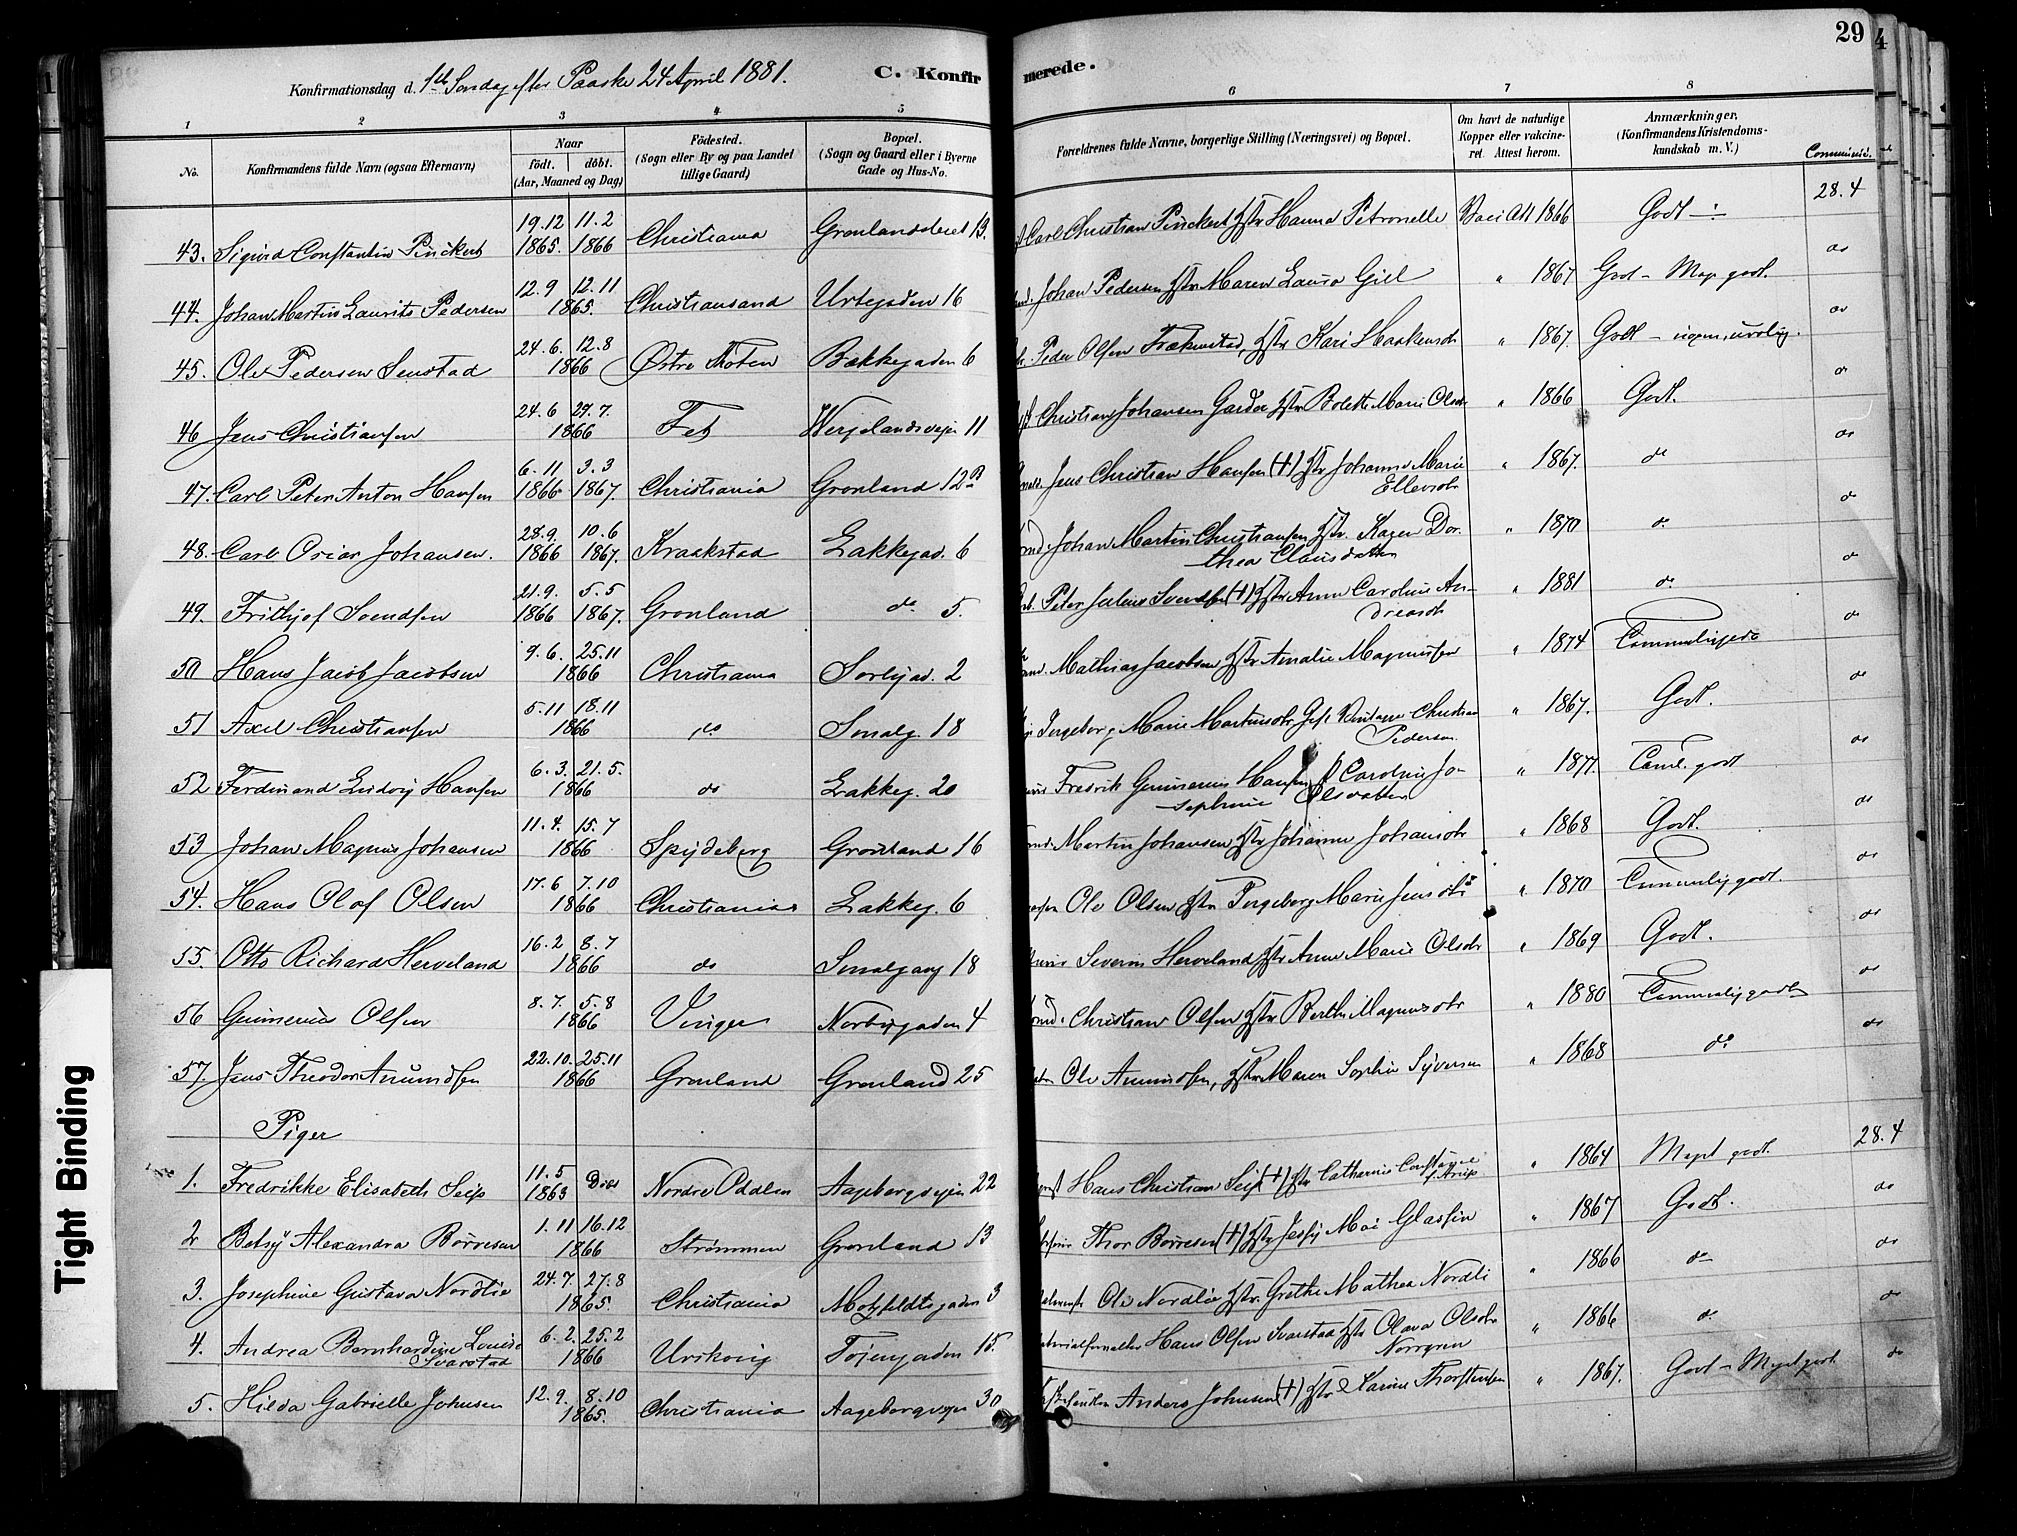 29
4
Konfirmationsdag d. 1ste Søndag efter Paaske 24 April 1881.
C. Konfirmerede.
1 2 3 4 5 6 7 8
No.
Konfirmandens fulde Navn (ogsaa Efternavn)
Naar
födt. döbt.
(Aar, Maaned og Dag)
Födested.
(Sogn eller By og paa Landet
tillige Gaard)
Bopæl.
(Sogn og Gaard eller i Byerne
Gade og Hus-No.
Forældrenes fulde Navne, borgerlige Stilling (Næringsvei) og Bopæl.
Om havt de naturlige
Kopper eller vakcine-
ret. Attest herom.
Anmærkninger.
(Konfirmandens Kristendoms-
kundskab m. V.)
19.12 11.2 28.4
43. Sigurd Constantin Pinckert 1865. 1866 Christiania Grønlandsleret 13. Carl Christian Pinckert Hstr Hanna Petronelle Vacc Att 1866 Godt
12.9 12.11
44. Johan Martin Laurits Pedersen 1865. Christiansand Urtegaden 16 Johan Pedersen Hstr Maren Laura Giil " 1867 Godt – Meget godt. do
24.6. 12.8
45. Ole Pedersen Senstad 1866 Østre Thoten Bakkegaden 6 Peder Olsen Hstr Kari Haakensdr " 1867 Godt – do
24.6 29.7.
46 Jens Christiansen 1866 Fet Wergelandsveien 11 Christian Johansen Garder Hstr Bolette Marie Olsdr " 1866 Godt. do
6.11 3.3
47. Carl Peter Anton Hansen 1866 1867. Christiania Grønland 12B Jens Christian Hansen (+) Hstr Johanne Marie " 1867. do do
Ellevsdr
28.9. 10.6
48. Carl Oscar Johansen. 1866 1867. Kraakstad Lakkegad. 6 Johan Martin Christiansen Hstr. Karen Dor- " 1870 do do
thea Clausdatter
21.9. 5.5
49. Frithjof Svendsen 1866 1867. Grønland do 5. Peter Julius Svendsen (+) Hstr Anne Caroline An- " 1881 do do
dreasdr
9.6. 25.11
50 Hans Jacob Jacobsen 1866 Christiania Sørligad. 2 Mathias Jacobsen Hstr Amalie Magnussen " 1874 do
5.11 18.11
51 Axel Christiansen 1866 do Smalg. 18 Ingeborg Marie Martinsdr Gift Christian " 1867. Godt. do
Pedersen
6.3. 21.5.
52 Ferdinand Ludvig Hansen 1866 do Lakkeg. 20 Fredrik Gunnerius Hansen Caroline Jo- " 1877. Teml. godt do
sephine Olsdatter
11.4. 15.7
53 Johan Magnus Johansen 1866 Spydeberg Grønland 16 Martin Johansen Hstr Johanne Johansdr " 1868 Godt. do
17.6 7.10
54. Hans Olaf Olsen 1866 Christiania Lakkeg. 6 Ole Olsen Hstr Ingeborg Marie Jensdr " 1870 Temmelig godt. do
16.2 8.7
55. Otto Richard Herveland 1866 do Smalgang 18 Severin Herveland Hstr Anne Marie Olsdr " 1869 Godt. do
8.7. 5.8
56 Gunnerius Olsen 1866 Vinger Norbygaden 4 Christian Olsen Hstr Berthe Magnusdr " 1880 Temmelig godt do
22.10. 25.11
57. Jens Theodor Amundsen 1866 Grønland Grønland 25 Ole Amundsen, Hstr Maren Sophie Syversen " 1868 do do
Piger
11.5 28.4
1. Fredrikke Elisabeth Seip 1863 Døbt Nordre Odalen Aagebergveien 22 Hans Christian Seip (+) Hstr Cathrine Constance " 1864 Meget godt.
1.11 16.12
2 Betsy Alexandra Børresen 1866 Strømmen Grønland 13 Thor Børresen (+) Hstr Jessy Mai Glassin " 1867 Godt. do
24.7. 27.8
3. Josephine Gustava Nordlie 1865. Christiania Motzfeldtsgaden 3 Ole Nordlie Hstr. Grethe Mathea Nordli " 1866 do do
6.2. 25.2
4. Andrea Bernhardine Louise 1866 Urskoug Tøiengaden 15. Materialforvalter Hans Olsen Svarstad Hstr Olava Olsdr " 1866 do do
Svarstad Norgren
12.9. 8.10
5. Hilda Gabrielle Johnsen 1865. Christiania Aagebergveien 30 Anders Johnsen (+) Hstr Karine Thorstensen " 1867. Godt – Meget godt do
Tight Binding